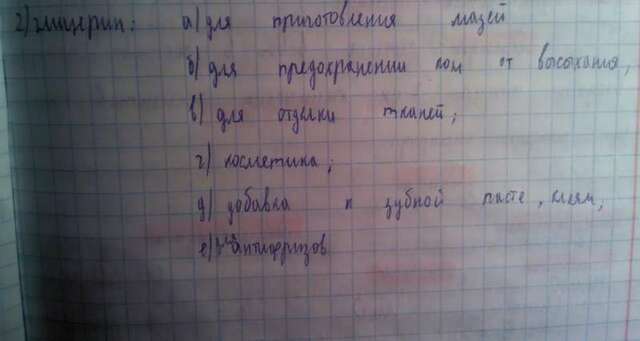 2) глицерин: а) для приготовления мазей
б) для предохранении кож от высыхания,
в) для отделки тканей;
г) косметика;
д) добавка к зубной пасте, клеям,
е) антифризов